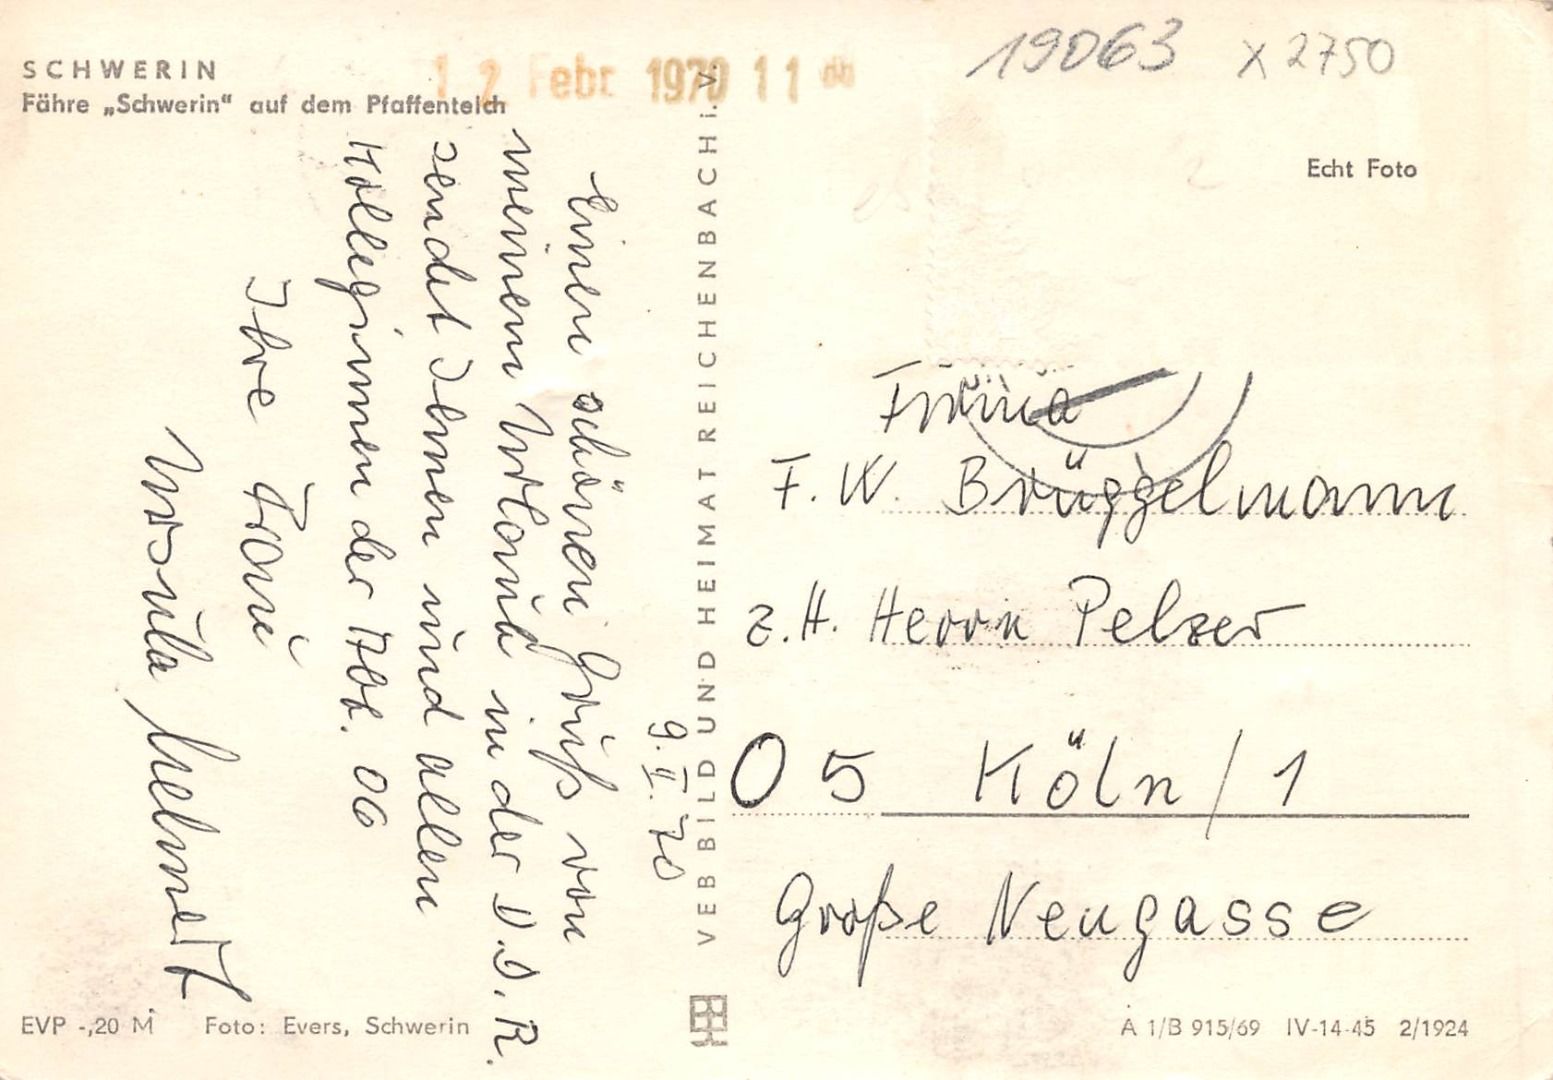 SCHWERIN
Fähre „Schwerin“ auf dem Pfaffenteich
12 Febr 1970 11
19063 x 2750
Echt Foto
9.II.70
Einen schönen Gruß von
meinem Urlaub in der D.D.R.
sendet Ihnen und allen
Kolleginnen der Abt. 06
Ihre Frau
Ursula
VEB BILD UND HEIMAT REICHENBACH i. V.
Firma
F. W. Brüggelmann
z.H. Herrn Pelzer
05 Köln/1
Große Neugasse
EVP -,20 M Foto: Evers, Schwerin
A 1/B 915/69 IV-14-45 2/1924